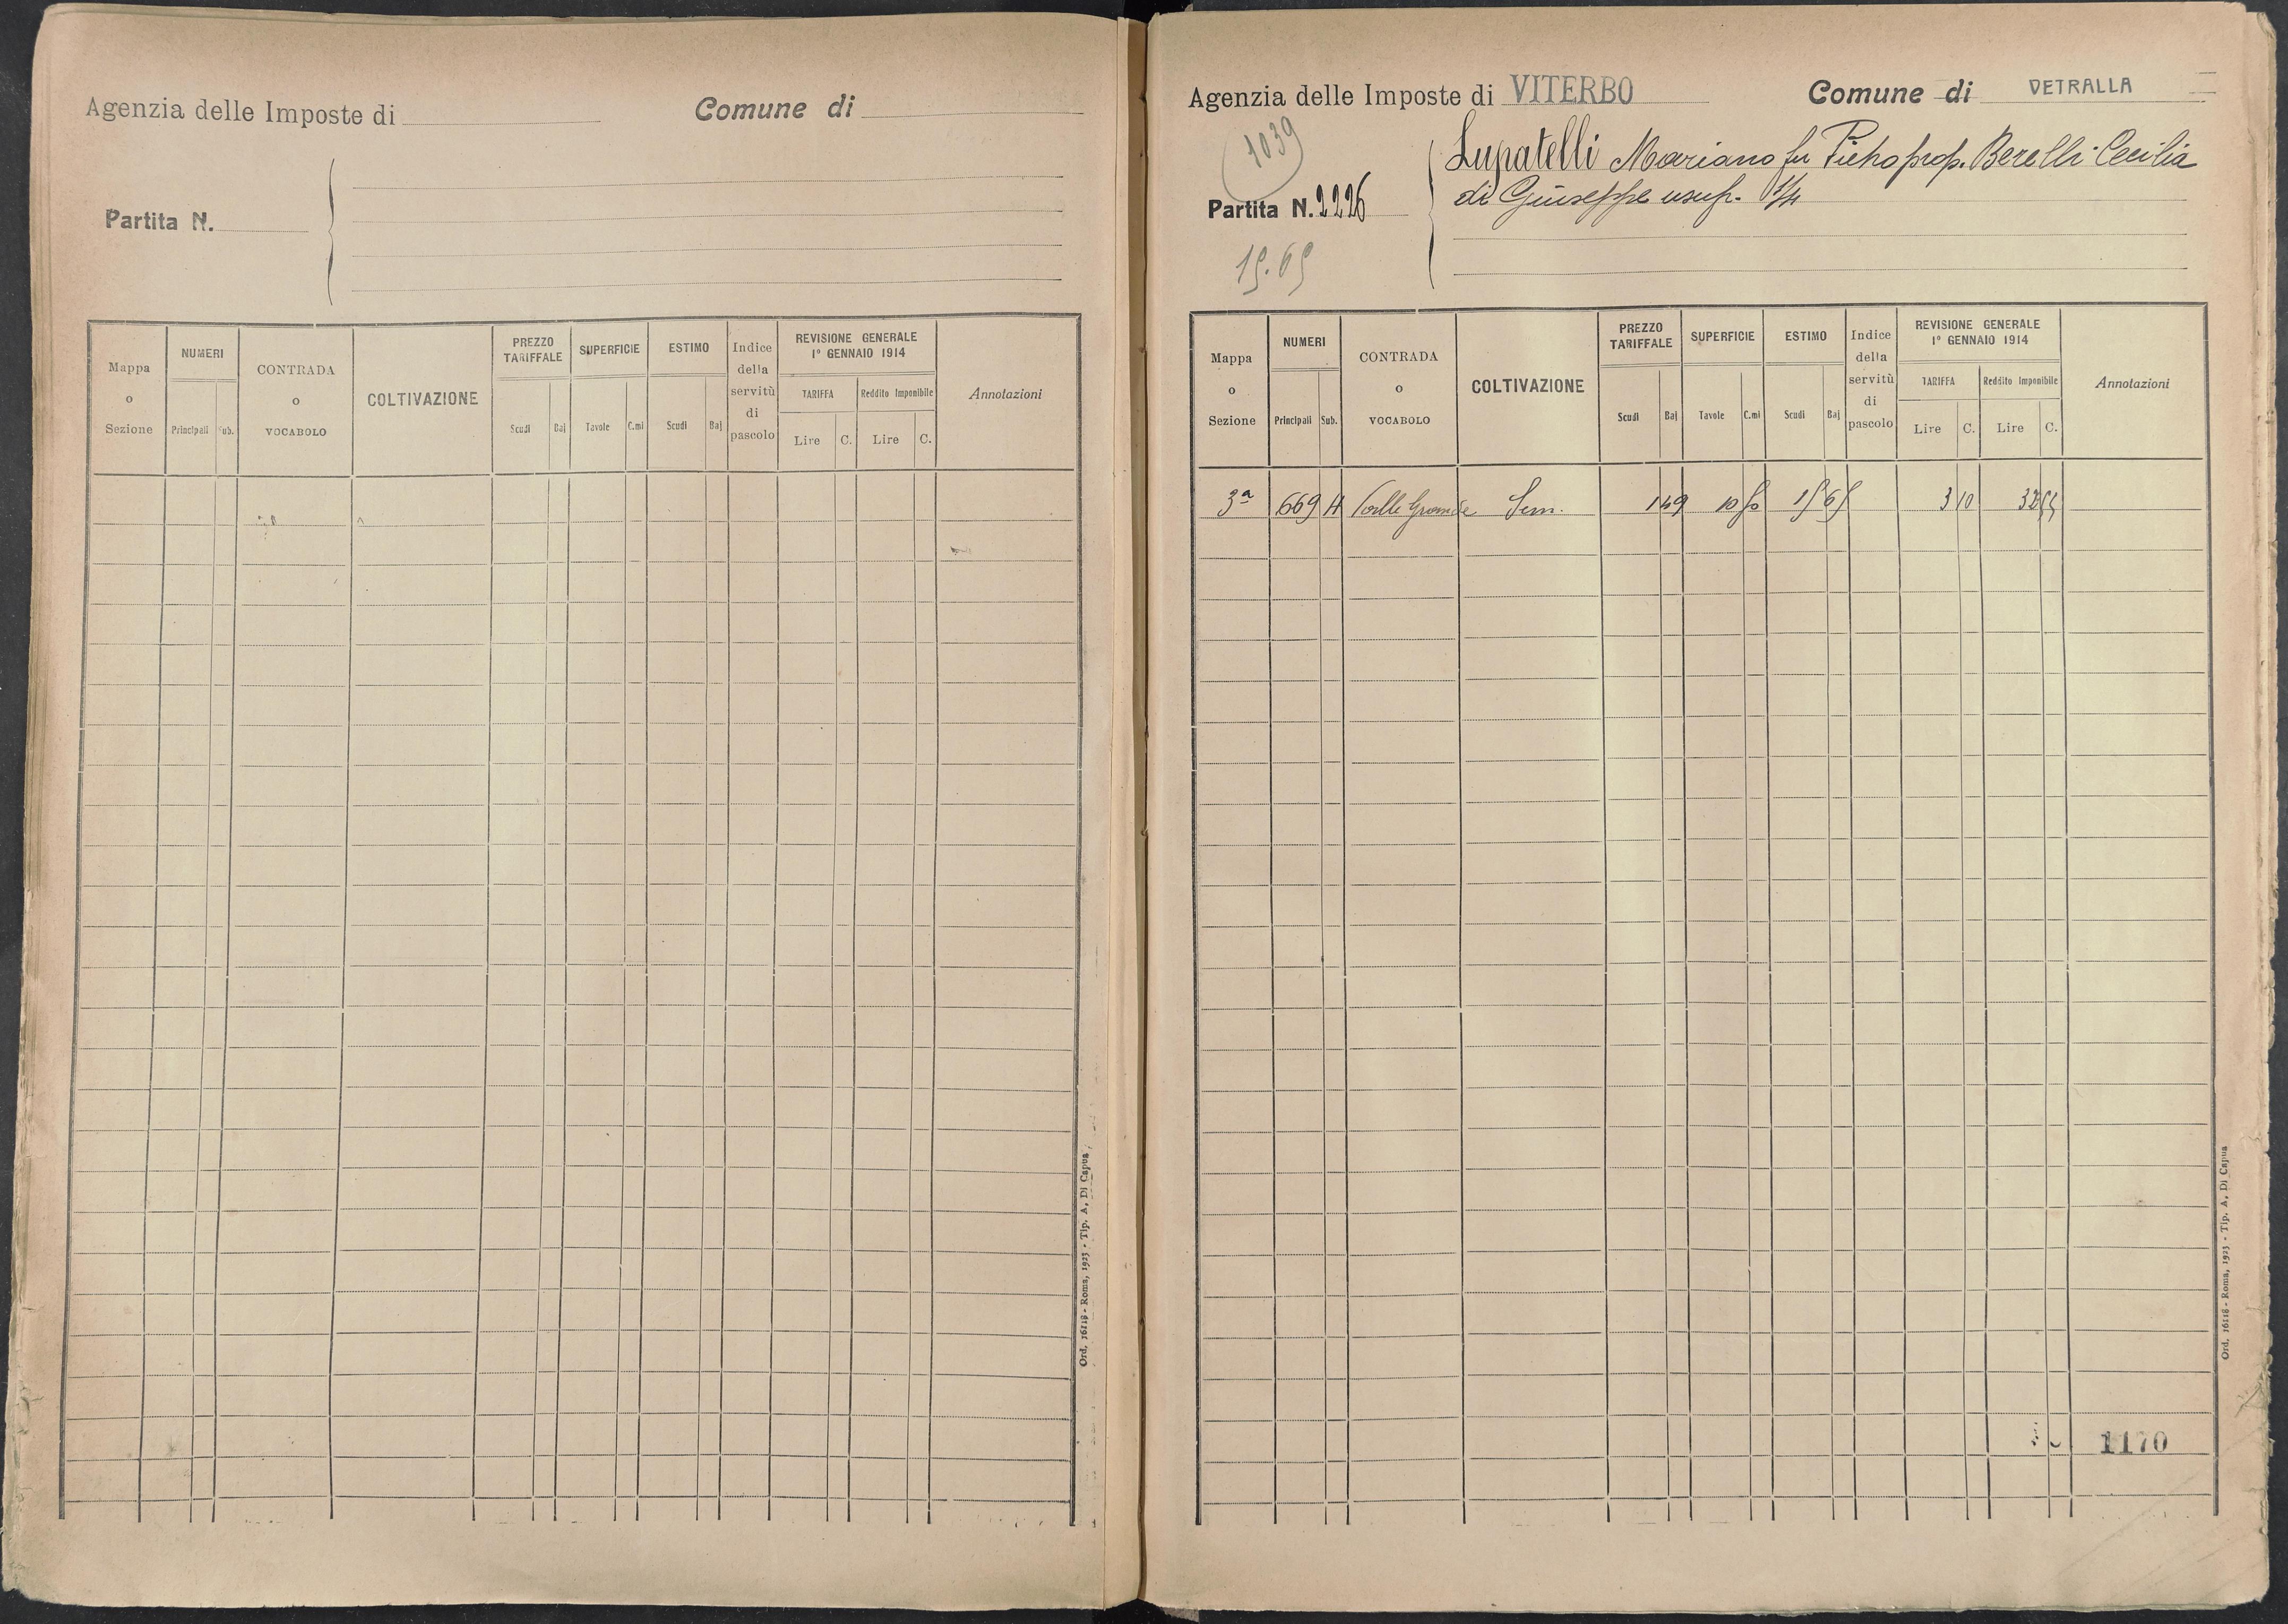 Agenzia delle Imposte di
Comune di
Partita N.
Mappa o Sezione
NUMERI
Principali
Sub.
CONTRADA o VOCABOLO
COLTIVAZIONE
PREZZO TARIFFALE
Scudi
Baj
SUPERFICIE
Tavole
C.mi
ESTIMO
Scudi
Baj
Indice della servitù di pascolo
REVISIONE GENERALE
1º GENNAIO 1914
TARIFFA
Lire
C.
Reddito Imponibile
Lire
C.
Annotazioni
Ord. 16118 - Roma, 1923 - Tip. A. Di Capua
Agenzia delle Imposte di VITERBO
Comune di VETRALLA
1039
Partita N. 2226
15.65
Lupatelli Mariano fu Pietro prop. Berelli Cecilia
di Giuseppe usuf. 1/4
Mappa o Sezione
NUMERI
Principali
Sub.
CONTRADA o VOCABOLO
COLTIVAZIONE
PREZZO TARIFFALE
Scudi
Baj
SUPERFICIE
Tavole
C.mi
ESTIMO
Scudi
Baj
Indice della servitù di pascolo
REVISIONE GENERALE
1º GENNAIO 1914
TARIFFA
Lire
C.
Reddito Imponibile
Lire
C.
Annotazioni
3ª 669 Valle Grande Sem. 1 49 10 50 15 65 3 10 32 55
1170
Ord. 16118 - Roma, 1923 - Tip. A. Di Capua